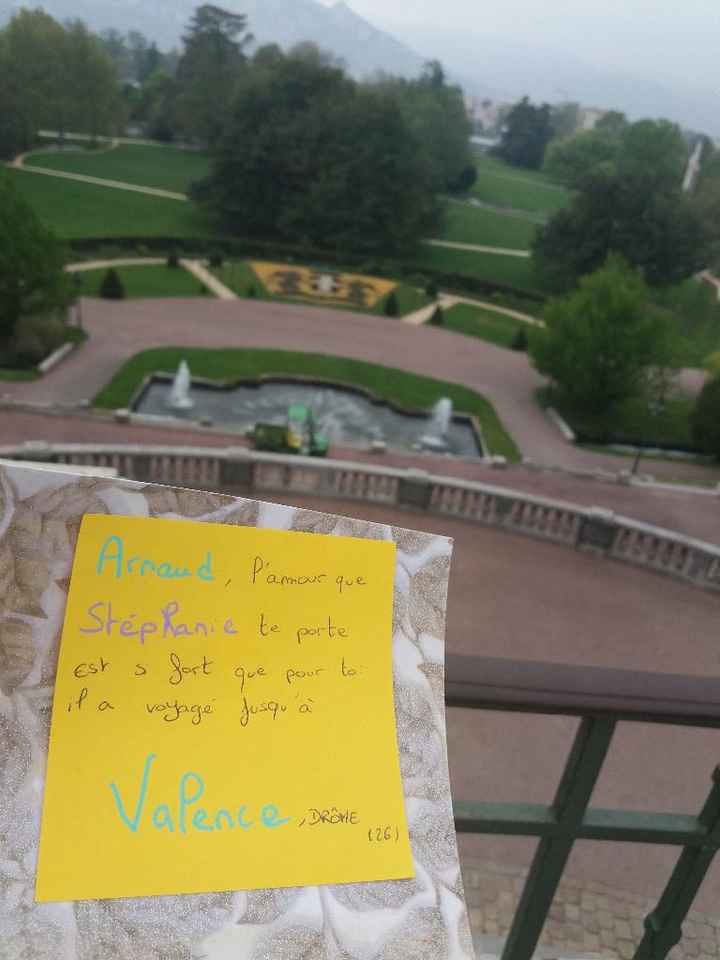 Arnaud, l'amour que
Stéphanie te porte
est s fort que pour toi
il a voyagé jusqu'à
Valence, DRÔME
(26)